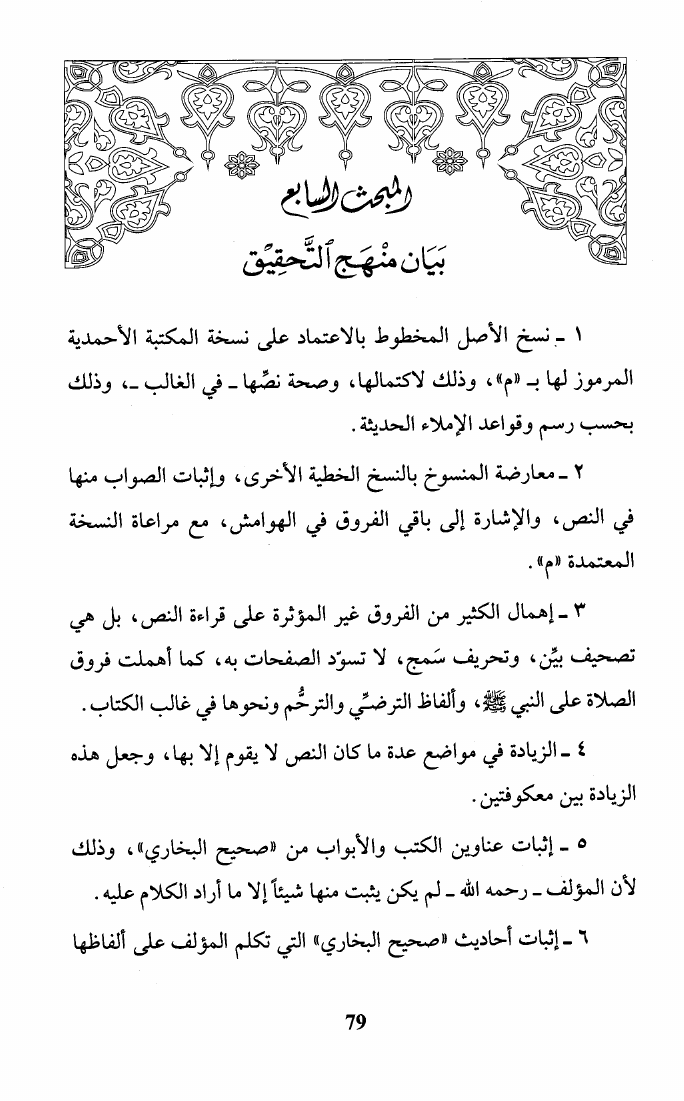 المبحث السابع
بَيَان مَنْهَج ٱلتَّحقِيْق
١ ـ نسخ الأصل المخطوط بالاعتماد على نسخة المكتبة الأحمدية
المرموز لها بـ «م»، وذلك لاكتمالها، وصحة نصِّها ـ في الغالب ـ، وذلك
بحسب رسم وقواعد الإملاء الحديثة.
٢ ـ معارضة المنسوخ بالنسخ الخطية الأخرى، وإثبات الصواب منها
في النص، والإشارة إلى باقي الفروق في الهوامش، مع مراعاة النسخة
المعتمدة «م».
٣ ـ إهمال الكثير من الفروق غير المؤثرة على قراءة النص، بل هي
تصحيف بيِّن، وتحريف سَمج، لا تسوّد الصفحات به، كما أهملت فروق
الصلاة على النبي ﷺ، وألفاظ الترضـِّي والترحُّم ونحوها في غالب الكتاب.
٤ ـ الزيادة في مواضع عدة ما كان النص لا يقوم إلا بها، وجعل هذه
الزيادة بين معكوفتين.
٥ ـ إثبات عناوين الكتب والأبواب من «صحيح البخاري»، وذلك
لأن المؤلف ـ رحمه الله ـ لم يكن يثبت منها شيئاً إلا ما أراد الكلام عليه.
٦ ـ إثبات أحاديث «صحيح البخاري» التي تكلم المؤلف على ألفاظها
79